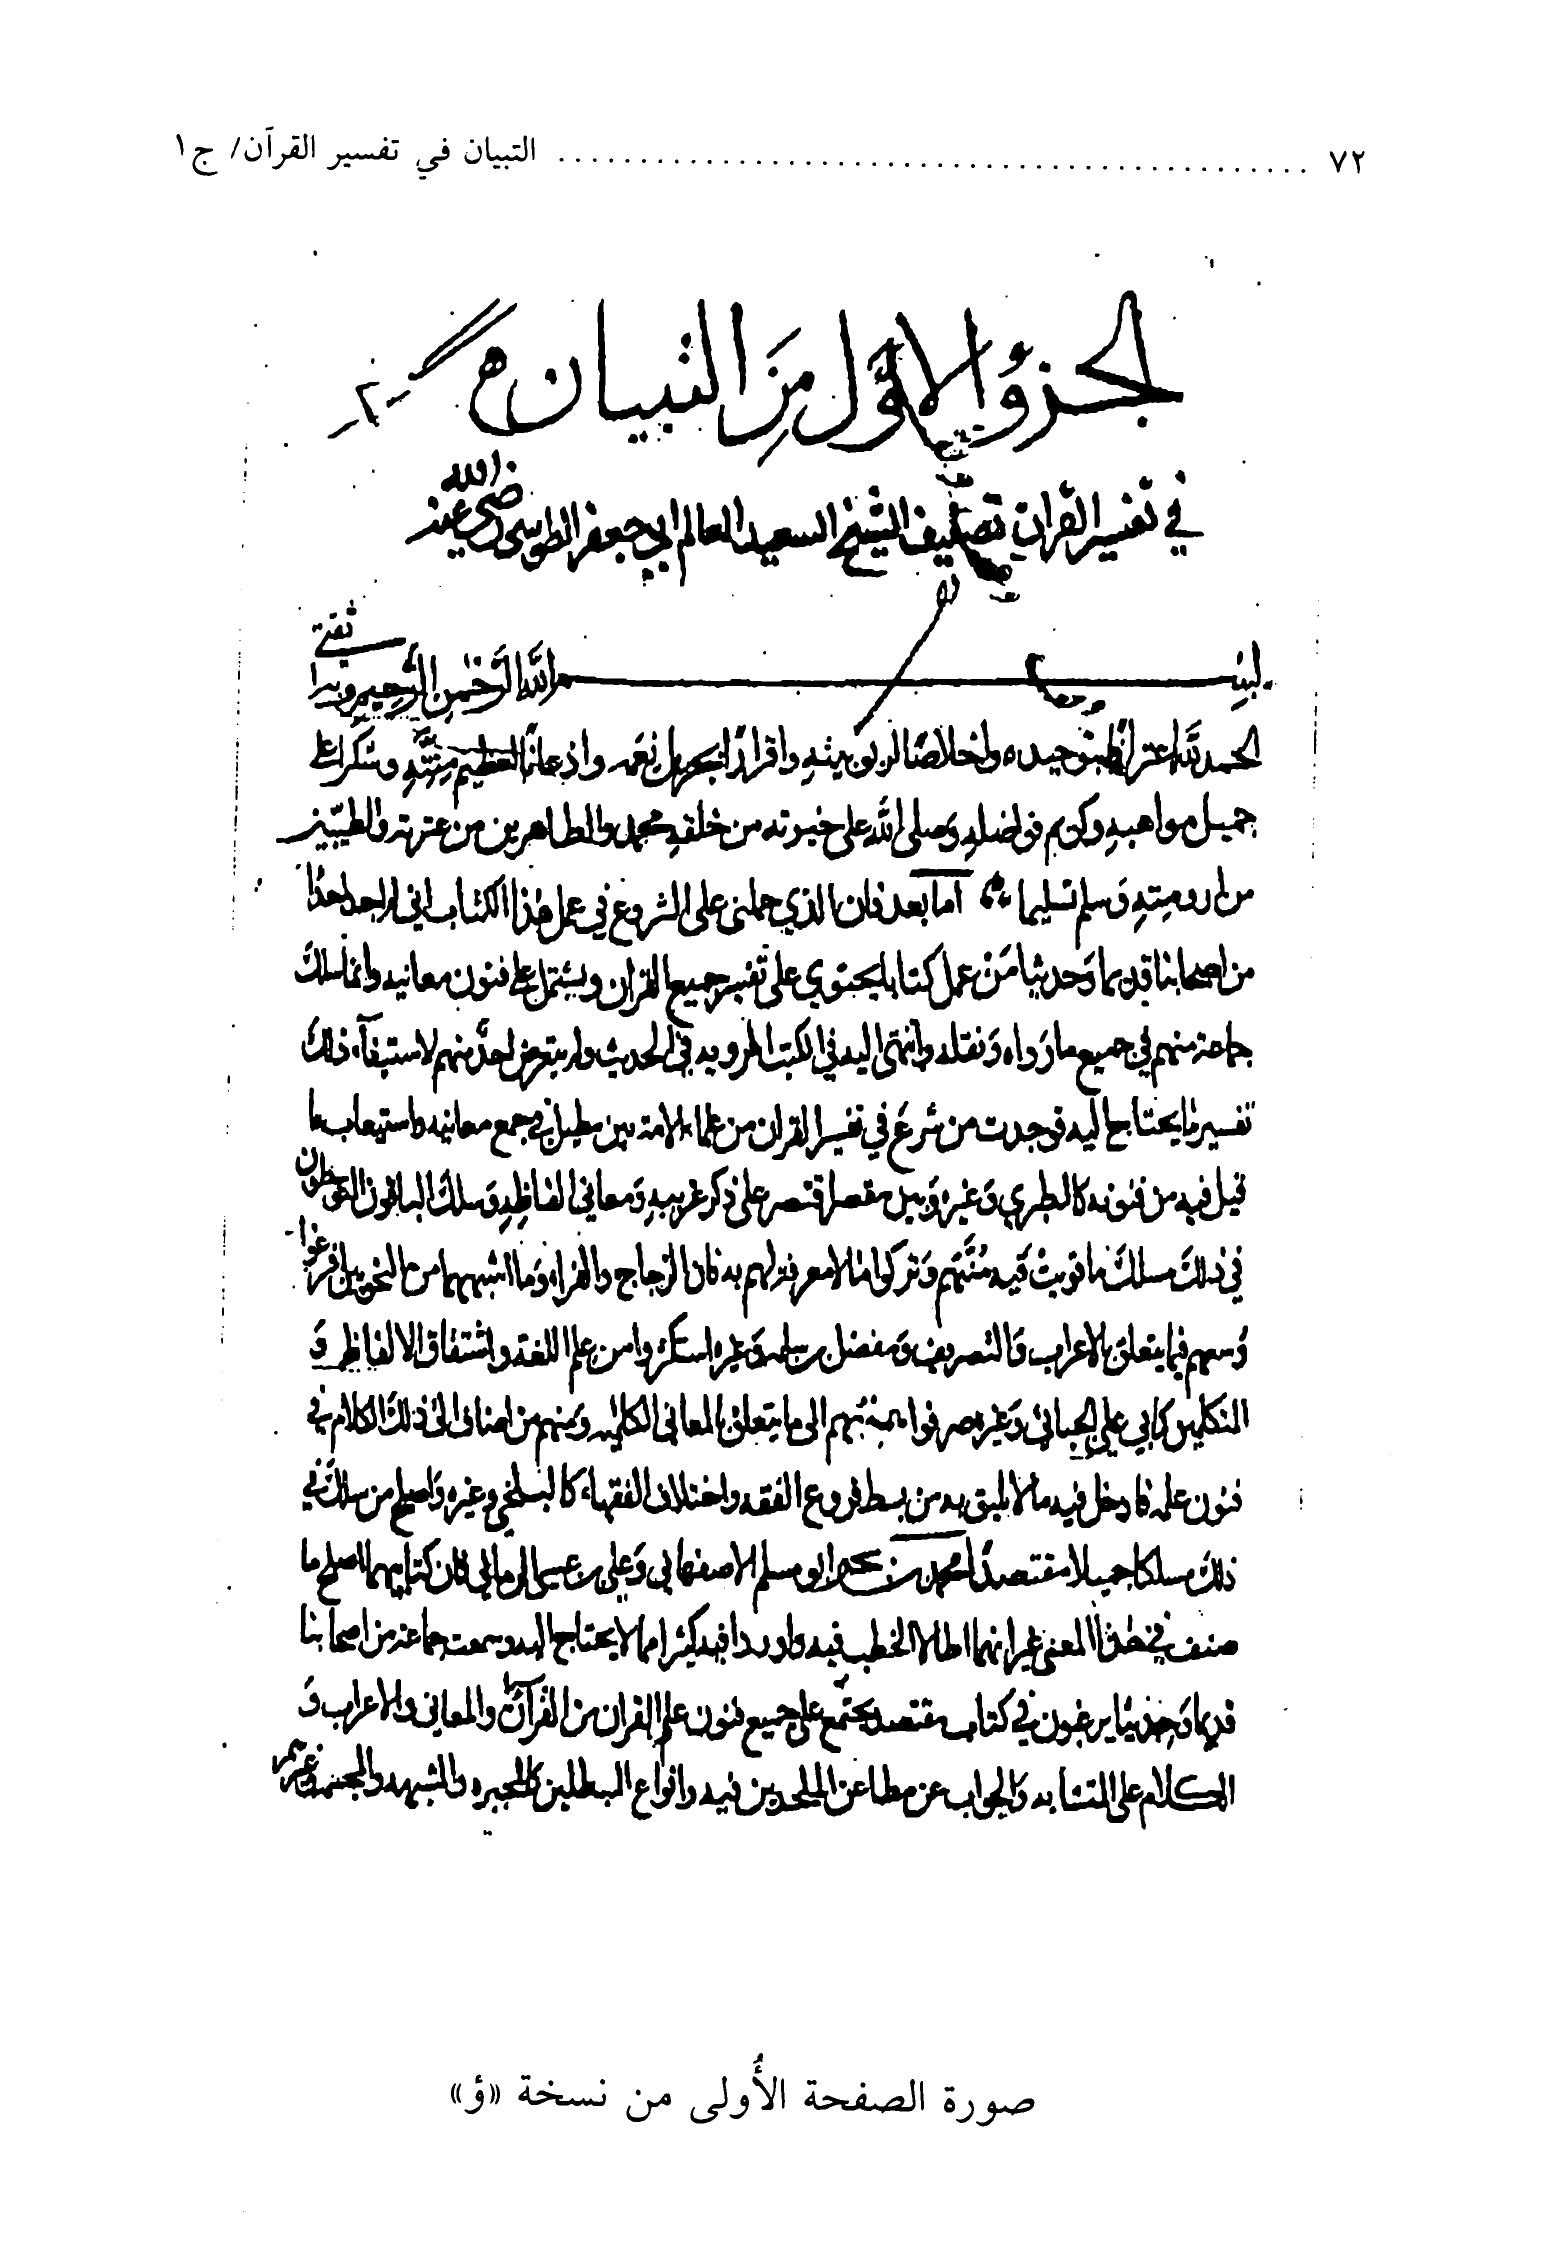 ٧٢ ............................................. التبيان في تفسير القرآن/ ج١
الجزؤ الاوّل مِنَ التبيان
في تفسير القرانِ تصنيف الشيخ السعيد العالم ابي جعفر الطوسي رضي الله عنه
بسم الله الرحمن الرحيم وبه ثقتي
الحمد لله اعترافًا بتوحيده واخلاصًا لربوبيته واقرارًا بجزيل نعمه واذعانًا لعظيم مننه وشكرا على
جميل مواهبه وكريم فواضله وصلى الله على خيرته من خلقه محمد والطاهرين من عترته والطيبين
من ارومته وسلم تسليما اما بعد فان الذي حملني على الشروع في عمل هذا الكتاب اني لم اجد احدًا
من اصحابنا قديما وحديثا مَنْ عمل كتابا يحتوي على تفسير جميع القران ويشتمل على فنون معانيه وانما سلك
جماعة منهم في جميع ما رواه ونقله وانتهى اليه في الكتب المرويه في الحديث ولم يتعرض احدٌ منهم لاستيفآء ذلك
تفسير ما يحتاج اليه فوجدت من شرع في تفسير القران من علماء الامة بين مطيل في جمع معانيه واستيعاب ما
قيل فيه من فنونه كالطبري وغيره وبين مقصر اقتصر على ذكر غريبه ومعاني الفاظه وسلك الباقون المتوسطون
في ذلك مسلك ما قويت فيه مُنَّتهم وتركوا مالا معرفة لهم به فان الزجاج والفراء وما اشبههما من النحويين افرغوا
وسعهم فيما يتعلق بالاعراب والتصريف ومفضل بن سلمه وغيره استكثروا من علم اللغه واشتقاق الالفاظ و
المتكلمين كابي علي الجبائي وغيره صرفوا همتهم الى ما يتعلق بالمعاني الكلاميه ومنهم من اضاف الى ذلك الكلام في
فنون علمه فادخل فيه مالا يليق به من بسط فروع الفقه واختلاف الفقهاء كالبلخي وغيره واصلح من سلك في
ذلك مسلكا جميلا مقتصدًا محمد بن بحر ابو مسلم الاصفهاني وعلي بن عيسى الرماني فان كتابيهما اصلح ما
صنف في هذا المعنى غير انهما اطالا الخطب فيه واوردا فيه كثيرا مما لا يحتاج اليه وسمعت جماعة من اصحابنا
قديما وحديثا يرغبون في كتاب مقتصد يجتمع على جميع فنون علم القران من القرآة والمعاني والاعراب و
الكلام على المتشابه والجواب عن مطاعن الملحدين فيه وانواع المبطلين كالمجبره والمشبهه والمجسمه وغيرهم
صورة الصفحة الأُولى من نسخة «ؤ»